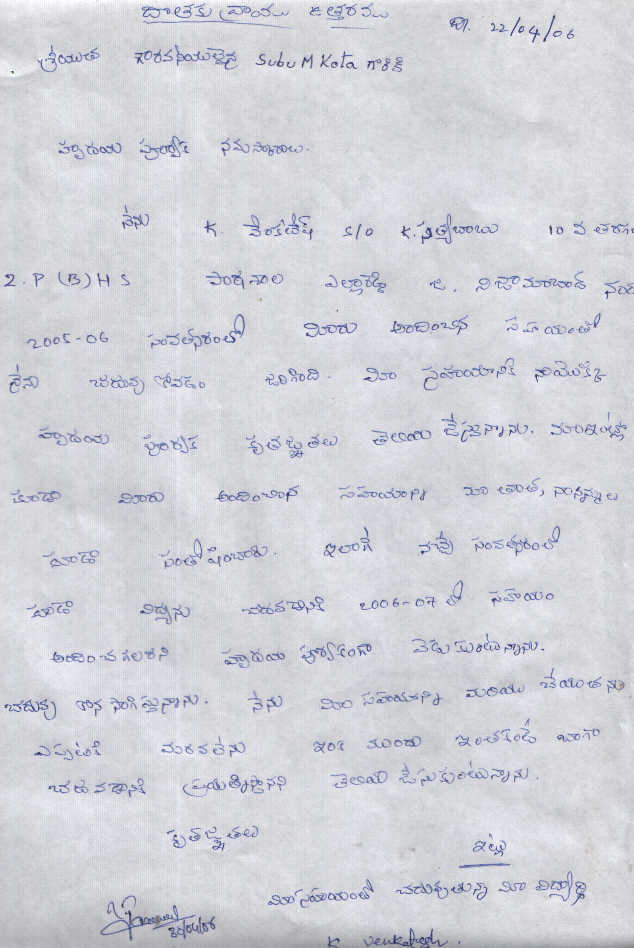 దాతకు వ్రాయు ఉత్తరము
ది. 22/04/06
శ్రీయుత గౌరవనీయులైన Subu M Kota గారికి
హృదయ పూర్వక నమస్కారాలు.
నేను K. వెంకటేష్ S/O K. సత్యబాబు 10 వ తరగ
Z.P (B) H S పాఠశాల ఎల్లారెడ్డి జి. నిజామాబాద్ నందు
2005-06 సంవత్సరంలో మీరు అందించిన సహాయంతో
నేను చదువుకోవడం జరిగింది. మీ సహాయానికి నాయొక్క
హృదయ పూర్వక కృతజ్ఞతలు తెలియజేస్తున్నాను. మాఇంట్లో
కూడా మీరు అందించిన సహాయాన్ని మా తాత, నాన్నమ్మలు
కూడా సంతోషించారు. ఇలాగే వచ్చే సంవత్సరంలో
కూడా విద్యను చదవడానికి 2006-07 లో సహాయం
అందించగలరని హృదయ పూర్వకంగా వేడుకుంటున్నాను.
చదువు కొనసాగిస్తున్నాను. నేను మీ సహాయాన్ని మరియు చేయూతను
ఎప్పటికి మరవలేను ఇంక ముందు ఇంతకంటే బాగా
చదవడానికి ప్రయత్నిస్తానని తెలియజేసుకుంటున్నాను.
కృతజ్ఞతలు
ఇట్లు
మీ సహాయంతో చదువుతున్న మీ విద్యార్థి
K. Venkatesh.